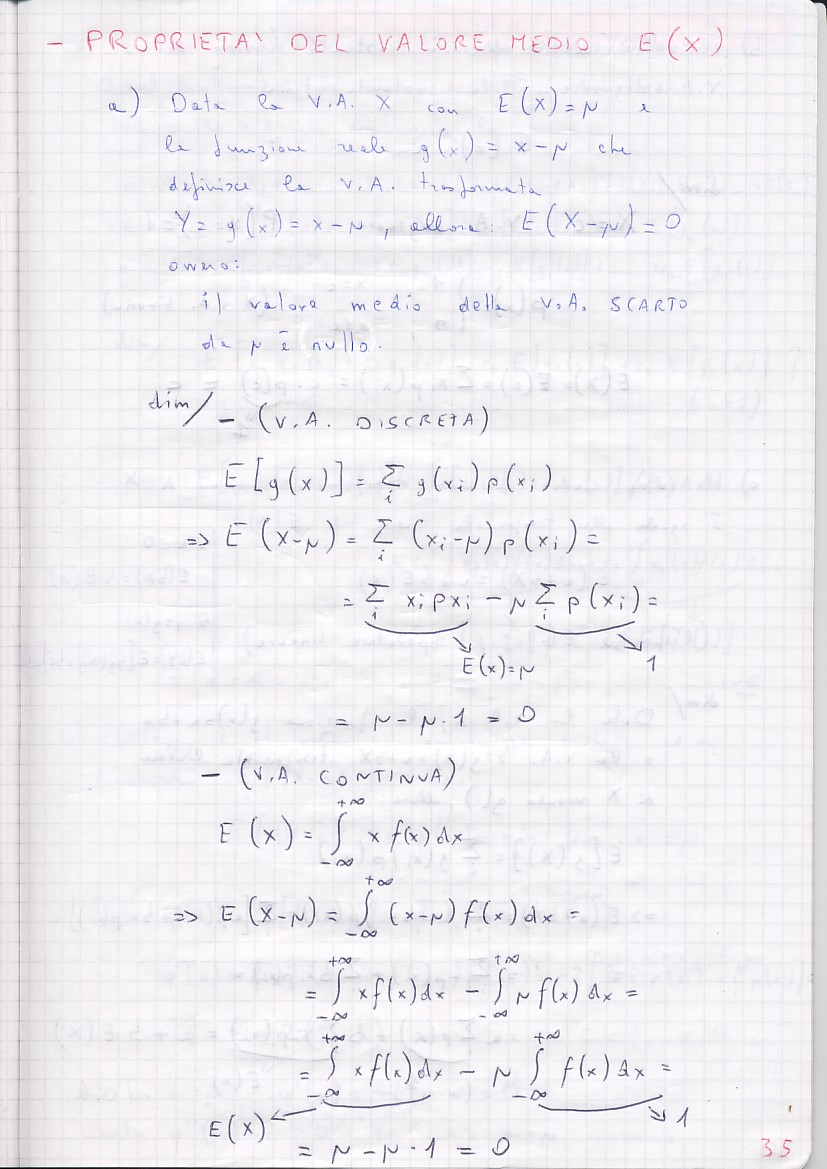 - PROPRIETA' DEL VALORE MEDIO E(X)
a) Data la V.A. X con E(X)=μ e
la funzione reale g(x) = x-μ che
definisce la V.A. trasformata
Y= g(x) = x-μ, allora: E(X-μ)=0
ovvero:
il valore medio della V.A. SCARTO
da μ è nullo.
dim/ - (V.A. DISCRETA)
E[g(x)] = Σ_i g(x_i) p(x_i)
=> E(x-μ) = Σ_i (x_i-μ) p(x_i) =
= Σ_i x_i p x_i - μ Σ_i p(x_i) =
E(x)=μ 1
= μ - μ·1 = 0
- (V.A. CONTINUA)
E(x) = ∫_{-∞}^{+∞} x f(x) dx
=> E(X-μ) = ∫_{-∞}^{+∞} (x-μ) f(x) dx =
= ∫_{-∞}^{+∞} x f(x) dx - ∫_{-∞}^{+∞} μ f(x) dx =
= ∫_{-∞}^{+∞} x f(x) dx - μ ∫_{-∞}^{+∞} f(x) dx =
E(X) 1
= μ - μ·1 = 0
35